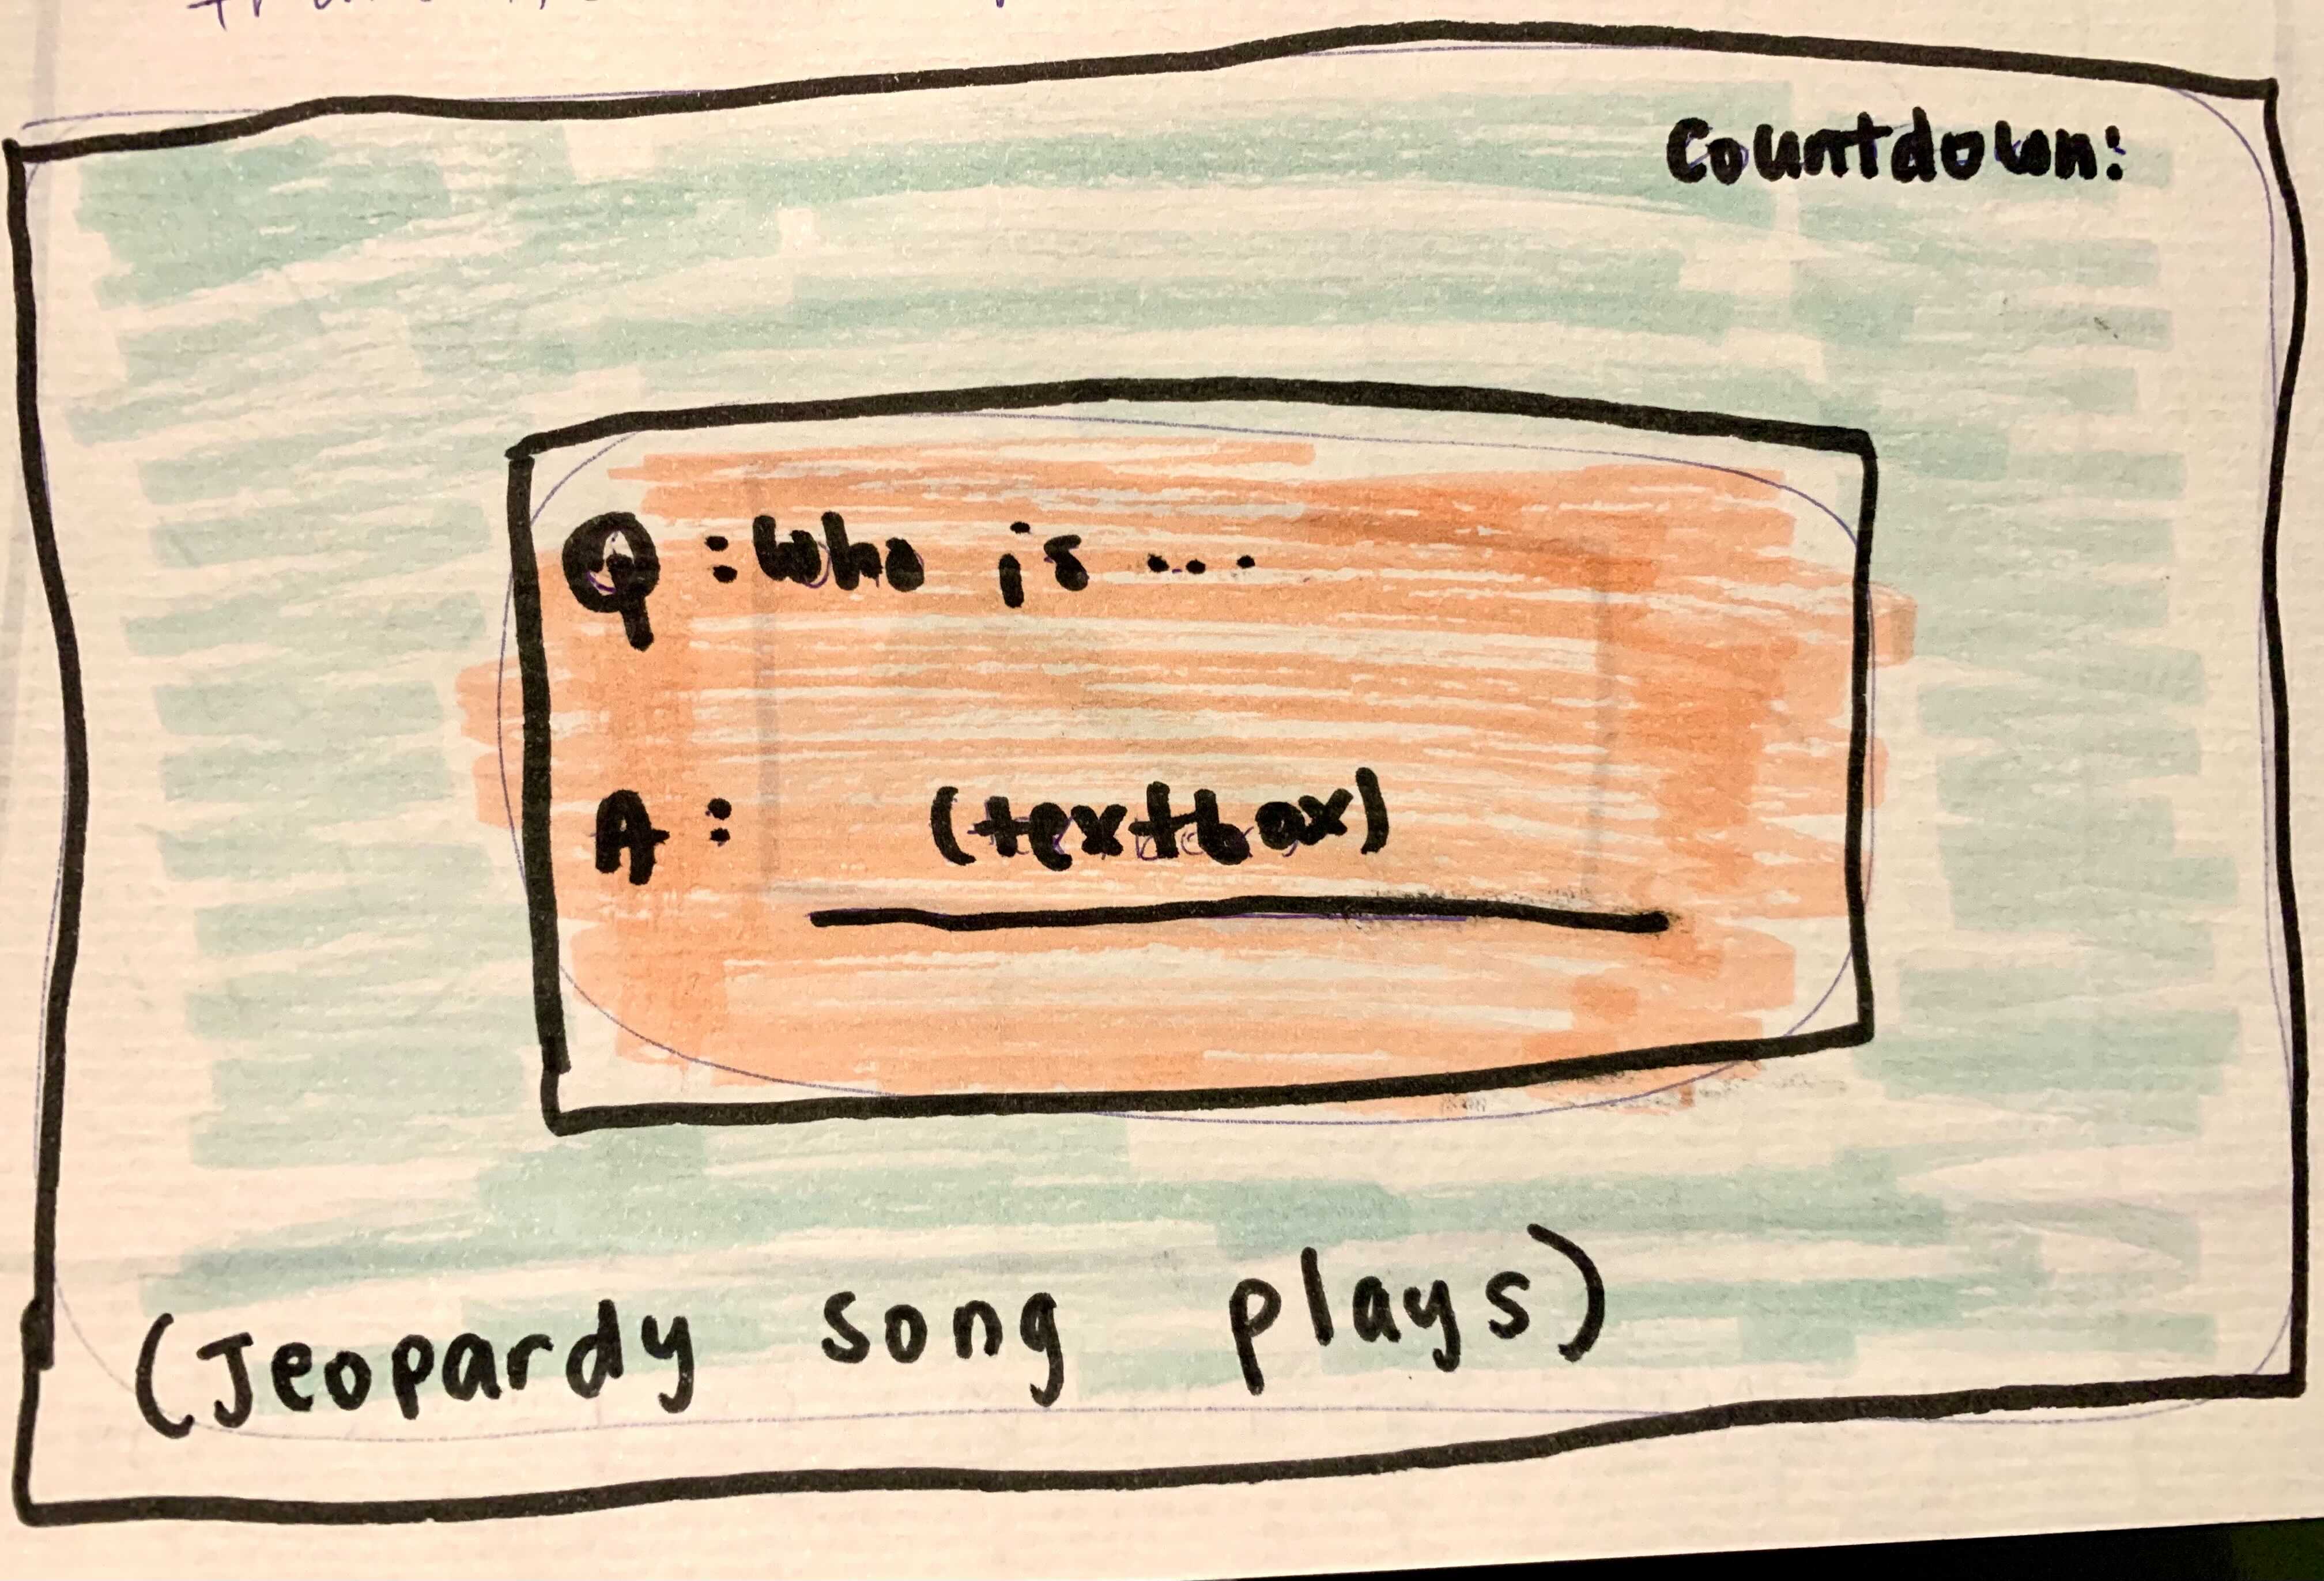 Countdown:
Q: Who is ...
A: (textbox)
(Jeopardy song plays)